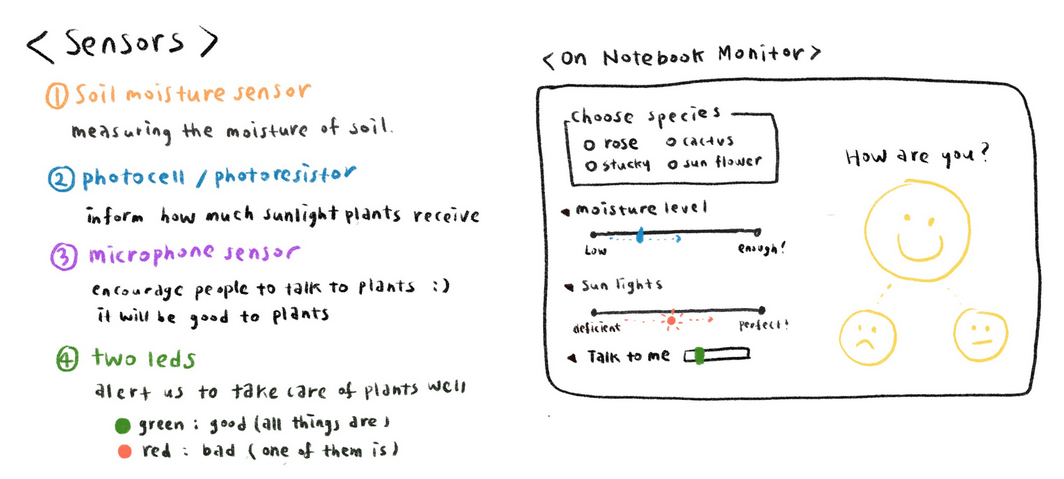 < Sensors >
① Soil moisture sensor
measuring the moisture of soil.
② photocell / photoresistor
inform how much sunlight plants receive
③ microphone sensor
encourage people to talk to plants :)
it will be good to plants
④ two leds
alert us to take care of plants well
green : good (all things are)
red : bad (one of them is)
< On Notebook Monitor >
choose species
rose cactus
stucky sun flower
moisture level
Low enough!
Sun lights
deficient perfect!
Talk to me
How are you?